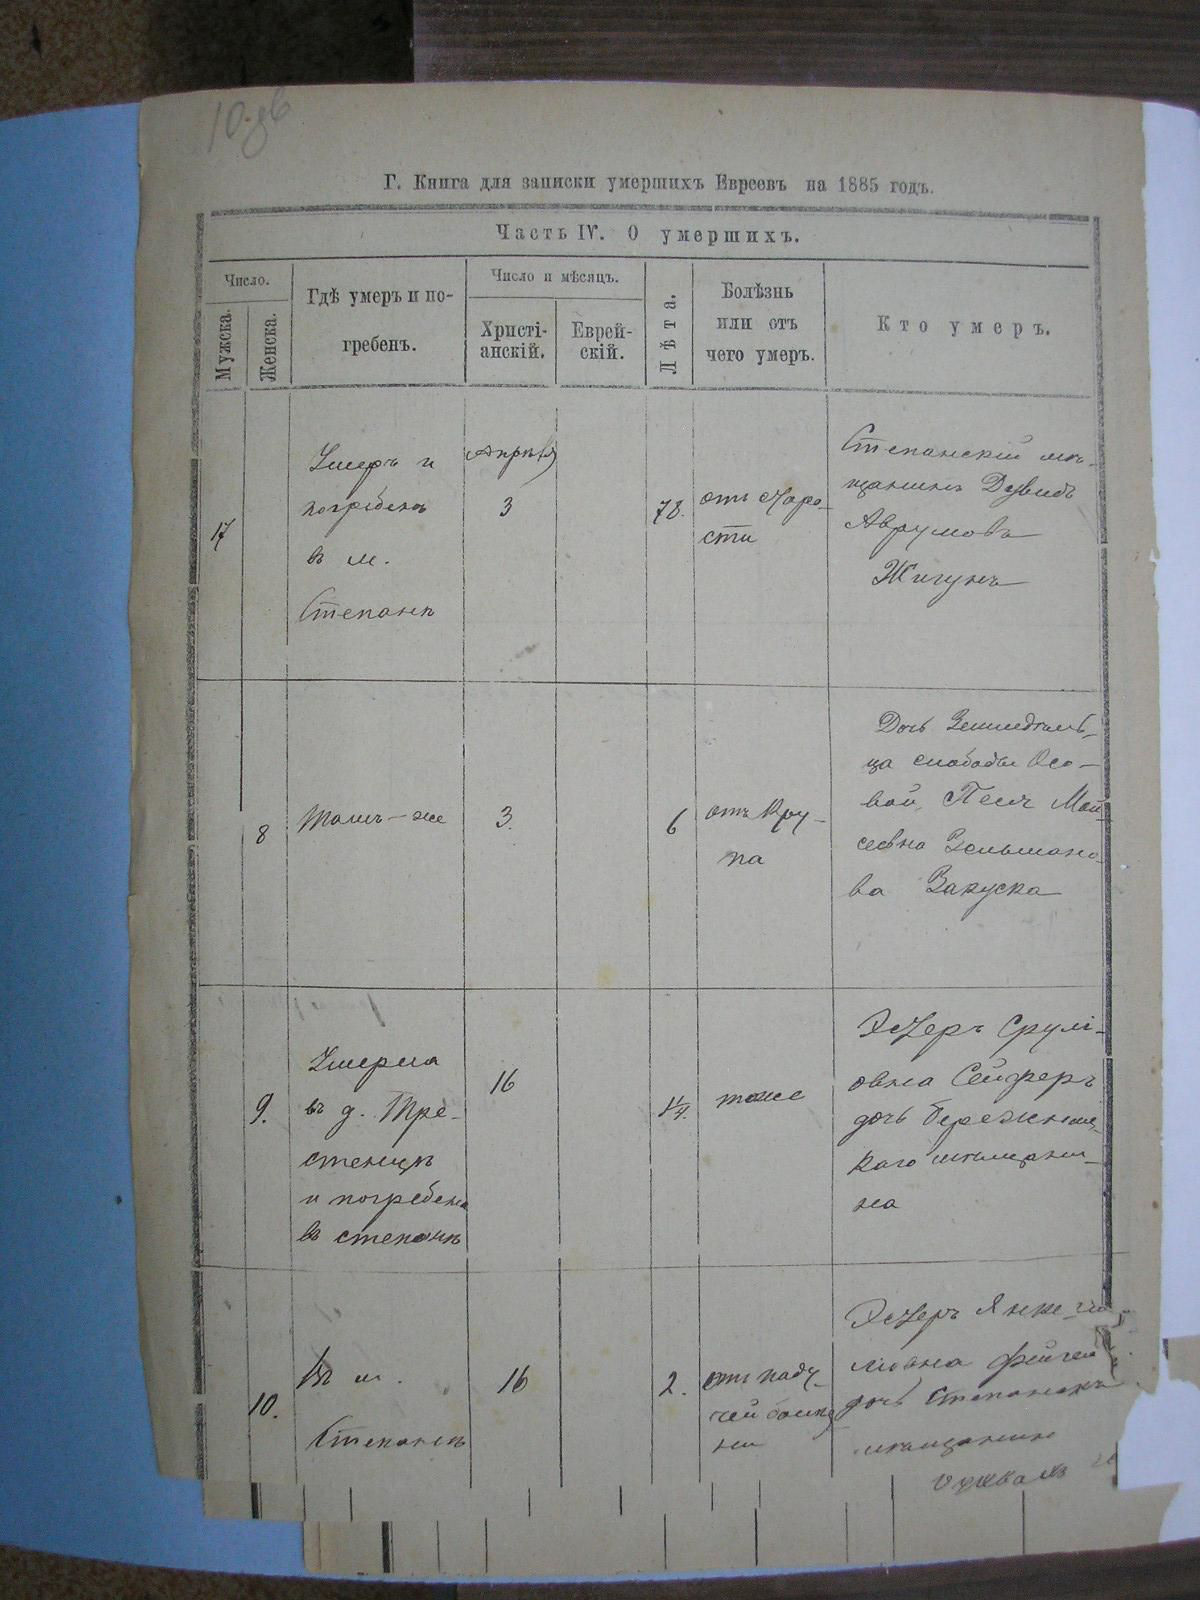 10 об
Г. Книга для записки умершихъ Евреевъ на 1885 годъ.
Часть IV. О умершихъ.
Число.
Мужска.
Женска.
Гдѣ умеръ и по-
гребенъ.
Число и мѣсяцъ.
Христі-
анскій.
Еврей-
скій.
Лѣта.
Болѣзнь
или отъ
чего умеръ.
Кто умеръ.
17
Умеръ и
погребенъ
въ м.
Степанѣ
Апрѣля
3
78.
отъ старо-
сти
Степанскій мѣ-
щанинъ Дувидъ
Аврумовъ
Жигунъ
8
Тамъ-же
3.
6
отъ кру-
па
Дочь Земледѣль-
ца слободы Осо-
вой, Песя Мой-
сеевна Зельмано-
ва Закуска
9.
Умерла
въ д. Тре-
стенцѣ
и погребена
въ степанѣ
16
1¼.
тоже
Эстеръ Срулі-
овна Сейферъ
дочь Бережниц-
каго мѣщани-
на
10.
Въ м.
Степанѣ
16
2.
отъ паду-
чей болѣз-
ни
Эстеръ Янке-
лiовна
дочь Степанск
мѣщанина